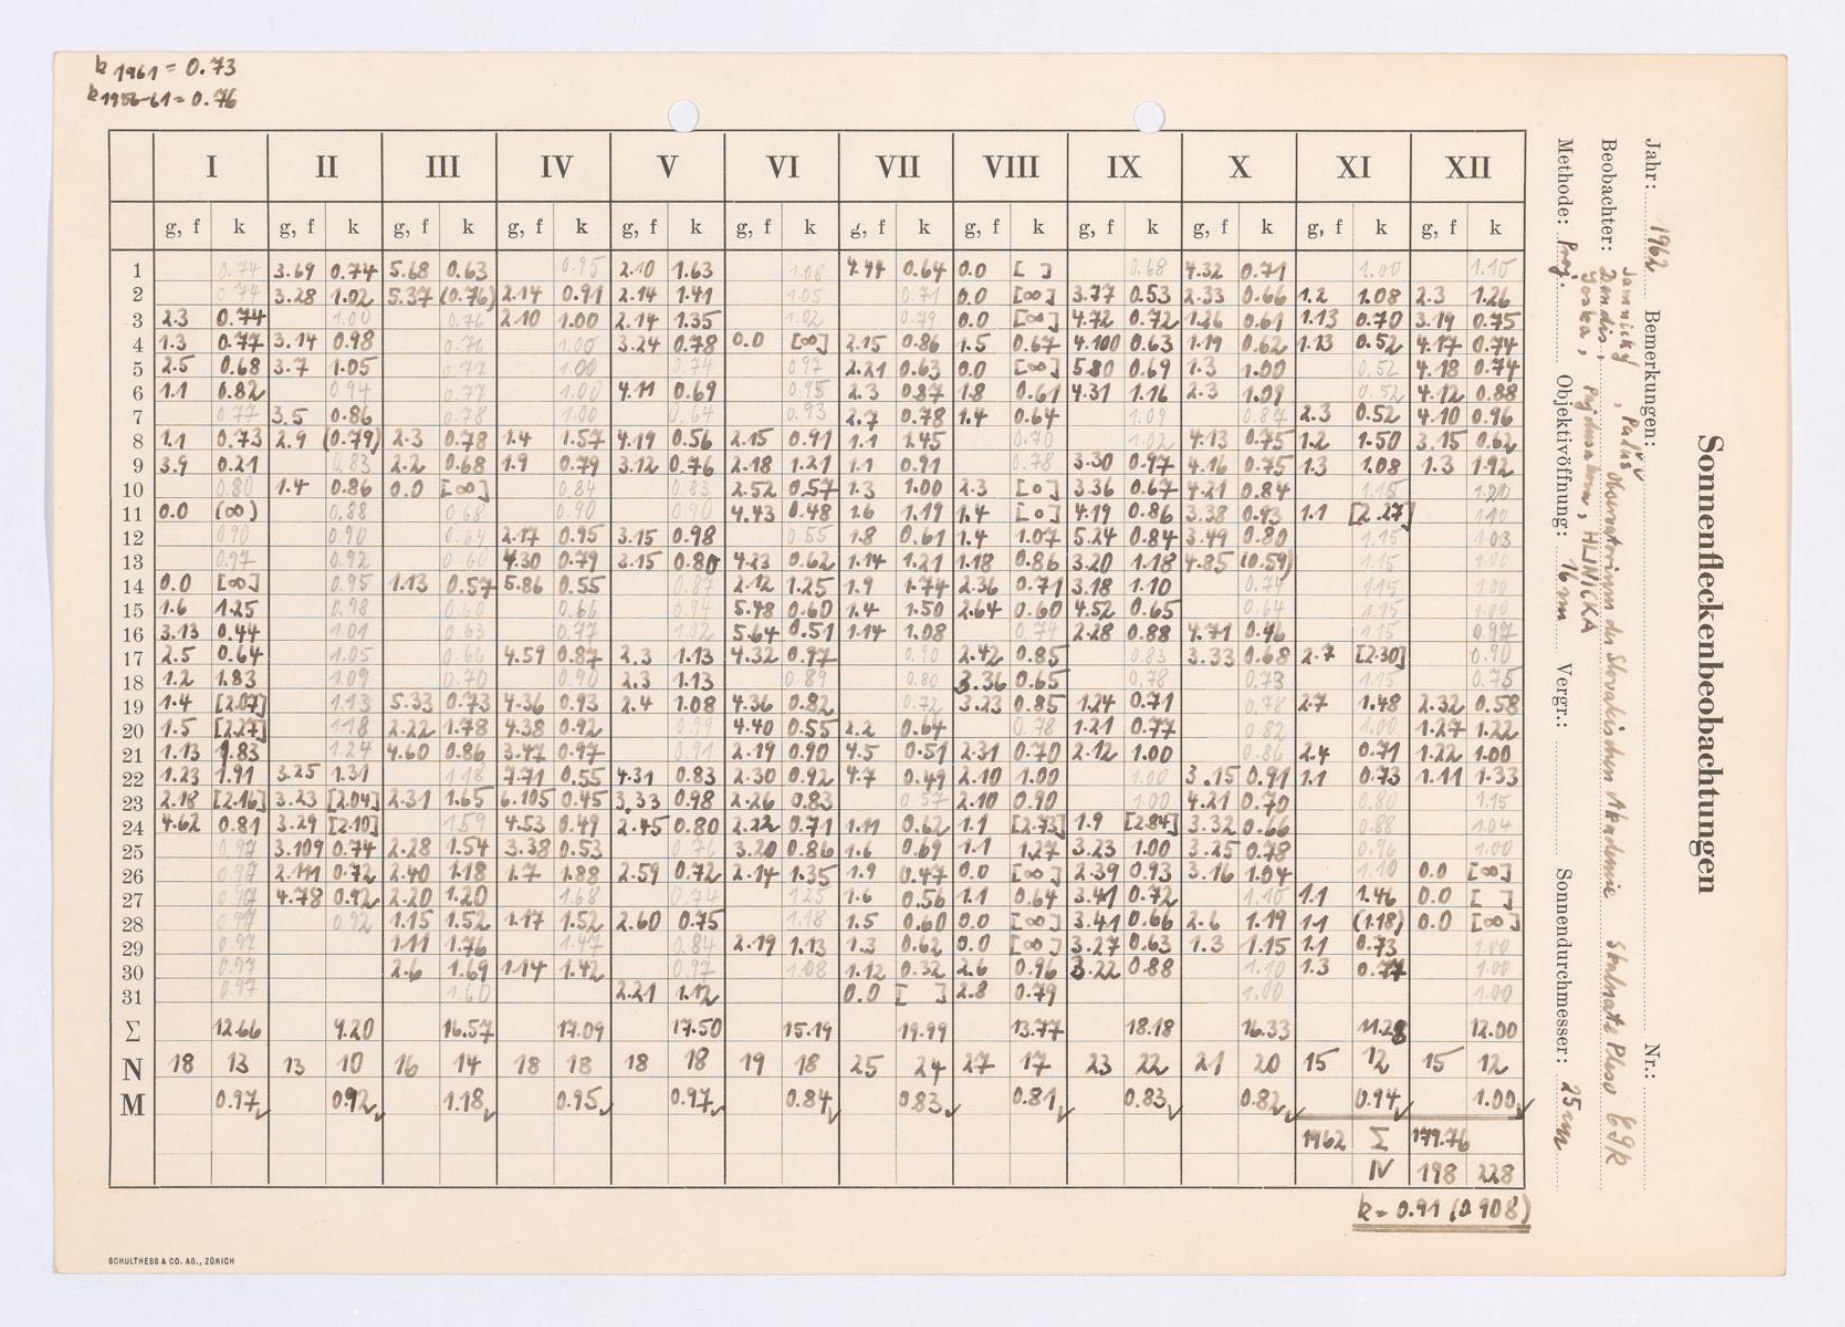 k 1961 = 0.73
k 1956-61 = 0.76
I II III IV V VI VII VIII IX X XI XII
g, f k g, f k g, f k g, f k g, f k g, f k g, f k g, f k g, f k g, f k g, f k g, f k
1 0.74 3.69 0.74 5.68 0.63 0.95 2.10 1.63 1.08 4.44 0.64 0.0 [ ] 0.68 4.32 0.71 1.00 1.10
2 0.74 3.28 1.02 5.37 (0.76) 2.14 0.91 2.14 1.41 1.05 0.71 0.0 [∞] 3.77 0.53 2.33 0.66 1.2 1.08 2.3 1.26
3 2.3 0.74 1.00 0.76 2.10 1.00 2.14 1.35 1.02 0.79 0.0 [∞] 4.72 0.72 1.26 0.61 1.13 0.70 3.19 0.75
4 1.3 0.77 3.14 0.98 0.76 1.00 3.24 0.78 0.0 [∞] 2.15 0.86 1.5 0.67 4.100 0.63 1.19 0.62 1.13 0.52 4.17 0.74
5 2.5 0.68 3.7 1.05 0.77 1.00 0.74 0.97 2.21 0.63 0.0 [∞] 5.80 0.69 1.3 1.00 0.52 4.18 0.74
6 1.1 0.82 0.94 0.77 1.00 4.11 0.69 0.95 2.3 0.87 1.8 0.61 4.31 1.16 2.3 1.09 0.52 4.12 0.88
7 0.77 3.5 0.86 0.78 1.00 0.64 0.93 2.7 0.78 1.4 0.64 1.09 0.87 2.3 0.52 4.10 0.96
8 1.1 0.73 2.9 (0.79) 2.3 0.78 1.4 1.57 4.19 0.56 2.15 0.91 1.1 1.45 0.70 1.02 4.13 0.75 1.2 1.50 3.15 0.62
9 3.9 0.21 0.83 2.2 0.68 1.9 0.79 3.12 0.76 2.18 1.21 1.1 0.91 0.78 3.30 0.97 4.16 0.75 1.3 1.08 1.3 1.92
10 0.80 1.4 0.86 0.0 [∞] 0.84 0.83 2.52 0.57 1.3 1.00 2.3 [0] 3.36 0.67 4.21 0.84 1.15 1.20
11 0.0 (∞) 0.88 0.68 0.90 0.90 4.43 0.48 1.6 1.19 1.4 [0] 4.19 0.86 3.38 0.93 1.1 [2.27] 1.10
12 0.90 0.90 0.64 2.17 0.95 3.15 0.98 0.55 1.8 0.61 1.4 1.07 5.24 0.84 3.49 0.80 1.15 1.03
13 0.97 0.92 0.60 4.30 0.79 3.15 0.80 4.23 0.62 1.14 1.21 1.18 0.86 3.20 1.18 4.85 (0.59) 1.15 1.00
14 0.0 [∞] 0.95 1.13 0.57 5.86 0.55 0.87 2.12 1.25 1.9 1.74 2.36 0.71 3.18 1.10 0.74 1.15 1.00
15 1.6 1.25 0.98 0.60 0.66 0.94 5.48 0.60 1.4 1.50 2.64 0.60 4.52 0.65 0.64 1.15 1.00
16 3.13 0.44 1.01 0.63 0.77 1.02 5.64 0.51 1.14 1.08 0.74 2.28 0.88 4.71 0.46 1.15 0.97
17 2.5 0.64 1.05 0.66 4.59 0.87 2.3 1.13 4.32 0.97 0.90 2.42 0.85 0.83 3.33 0.68 2.7 [2.30] 0.90
18 1.2 1.83 1.09 0.70 0.90 2.3 1.13 0.89 0.80 3.36 0.65 0.78 0.73 1.15 0.75
19 1.4 [2.07] 1.13 5.33 0.73 4.36 0.93 2.4 1.08 4.36 0.82 0.72 3.23 0.85 1.24 0.71 0.78 2.7 1.48 2.32 0.58
20 1.5 [2.27] 1.18 2.22 1.78 4.38 0.92 0.99 4.40 0.55 2.2 0.64 0.78 1.21 0.77 0.82 1.00 1.27 1.22
21 1.13 1.83 1.24 4.60 0.86 3.47 0.97 0.91 2.19 0.90 4.5 0.51 2.31 0.70 2.12 1.00 0.86 2.4 0.71 1.22 1.00
22 1.23 1.91 3.25 1.31 1.18 7.71 0.55 4.31 0.83 2.30 0.92 4.7 0.49 2.10 1.00 1.00 3.15 0.91 1.1 0.73 1.11 1.33
23 2.18 [2.16] 3.23 [2.04] 2.31 1.65 6.105 0.45 3.33 0.98 2.26 0.83 0.57 2.10 0.90 1.00 4.21 0.70 0.80 1.15
24 4.62 0.81 3.29 [2.10] 1.59 4.53 0.49 2.45 0.80 2.22 0.71 1.11 0.62 1.1 [2.73] 1.9 [2.84] 3.32 0.66 0.88 1.04
25 0.97 3.109 0.74 2.28 1.54 3.38 0.53 0.76 3.20 0.86 1.6 0.69 1.1 1.27 3.23 1.00 3.25 0.78 0.96 1.00
26 0.97 2.111 0.72 2.40 1.18 1.7 1.88 2.59 0.72 2.14 1.35 1.9 0.47 0.0 [∞] 2.39 0.93 3.16 1.04 1.10 0.0 [∞]
27 0.97 4.78 0.92 2.20 1.20 1.68 0.74 1.25 1.6 0.56 1.1 0.64 3.41 0.72 1.10 1.1 1.46 0.0 [ ]
28 0.97 0.92 1.15 1.52 1.17 1.52 2.60 0.75 1.18 1.5 0.60 0.0 [∞] 3.41 0.66 2.6 1.19 1.1 (1.18) 0.0 [∞]
29 0.97 1.11 1.76 1.47 0.84 2.19 1.13 1.3 0.62 0.0 [∞] 3.27 0.63 1.3 1.15 1.1 0.73 1.00
30 0.97 2.6 1.69 1.14 1.42 0.97 1.08 1.12 0.32 2.6 0.96 3.22 0.88 1.10 1.3 0.77 1.00
31 0.97 1.60 2.21 1.12 0.0 [ ] 2.8 0.79 1.00 1.00
Σ 12.66 9.20 16.57 17.09 17.50 15.19 19.99 13.77 18.18 16.33 11.28 12.00
N 18 13 13 10 16 14 18 18 18 18 19 18 25 24 27 17 23 22 21 20 15 12 15 12
M 0.97 0.92 1.18 0.95 0.97 0.84 0.83 0.81 0.83 0.82 0.94 1.00
1962 Σ 179.76
N 198 228
k = 0.91 (0.908)
SCHULTHESS & CO. AG., ZÜRICH
Sonnenfleckenbeobachtungen
Jahr: 1962 Bemerkungen: Nr.:
Beobachter: HLINICKA Observatorium der Slovakischen Akademie Skalnate Pleso
Methode: Proj. Objektivöffnung: 16 cm Vergr.: Sonnendurchmesser: 25 cm